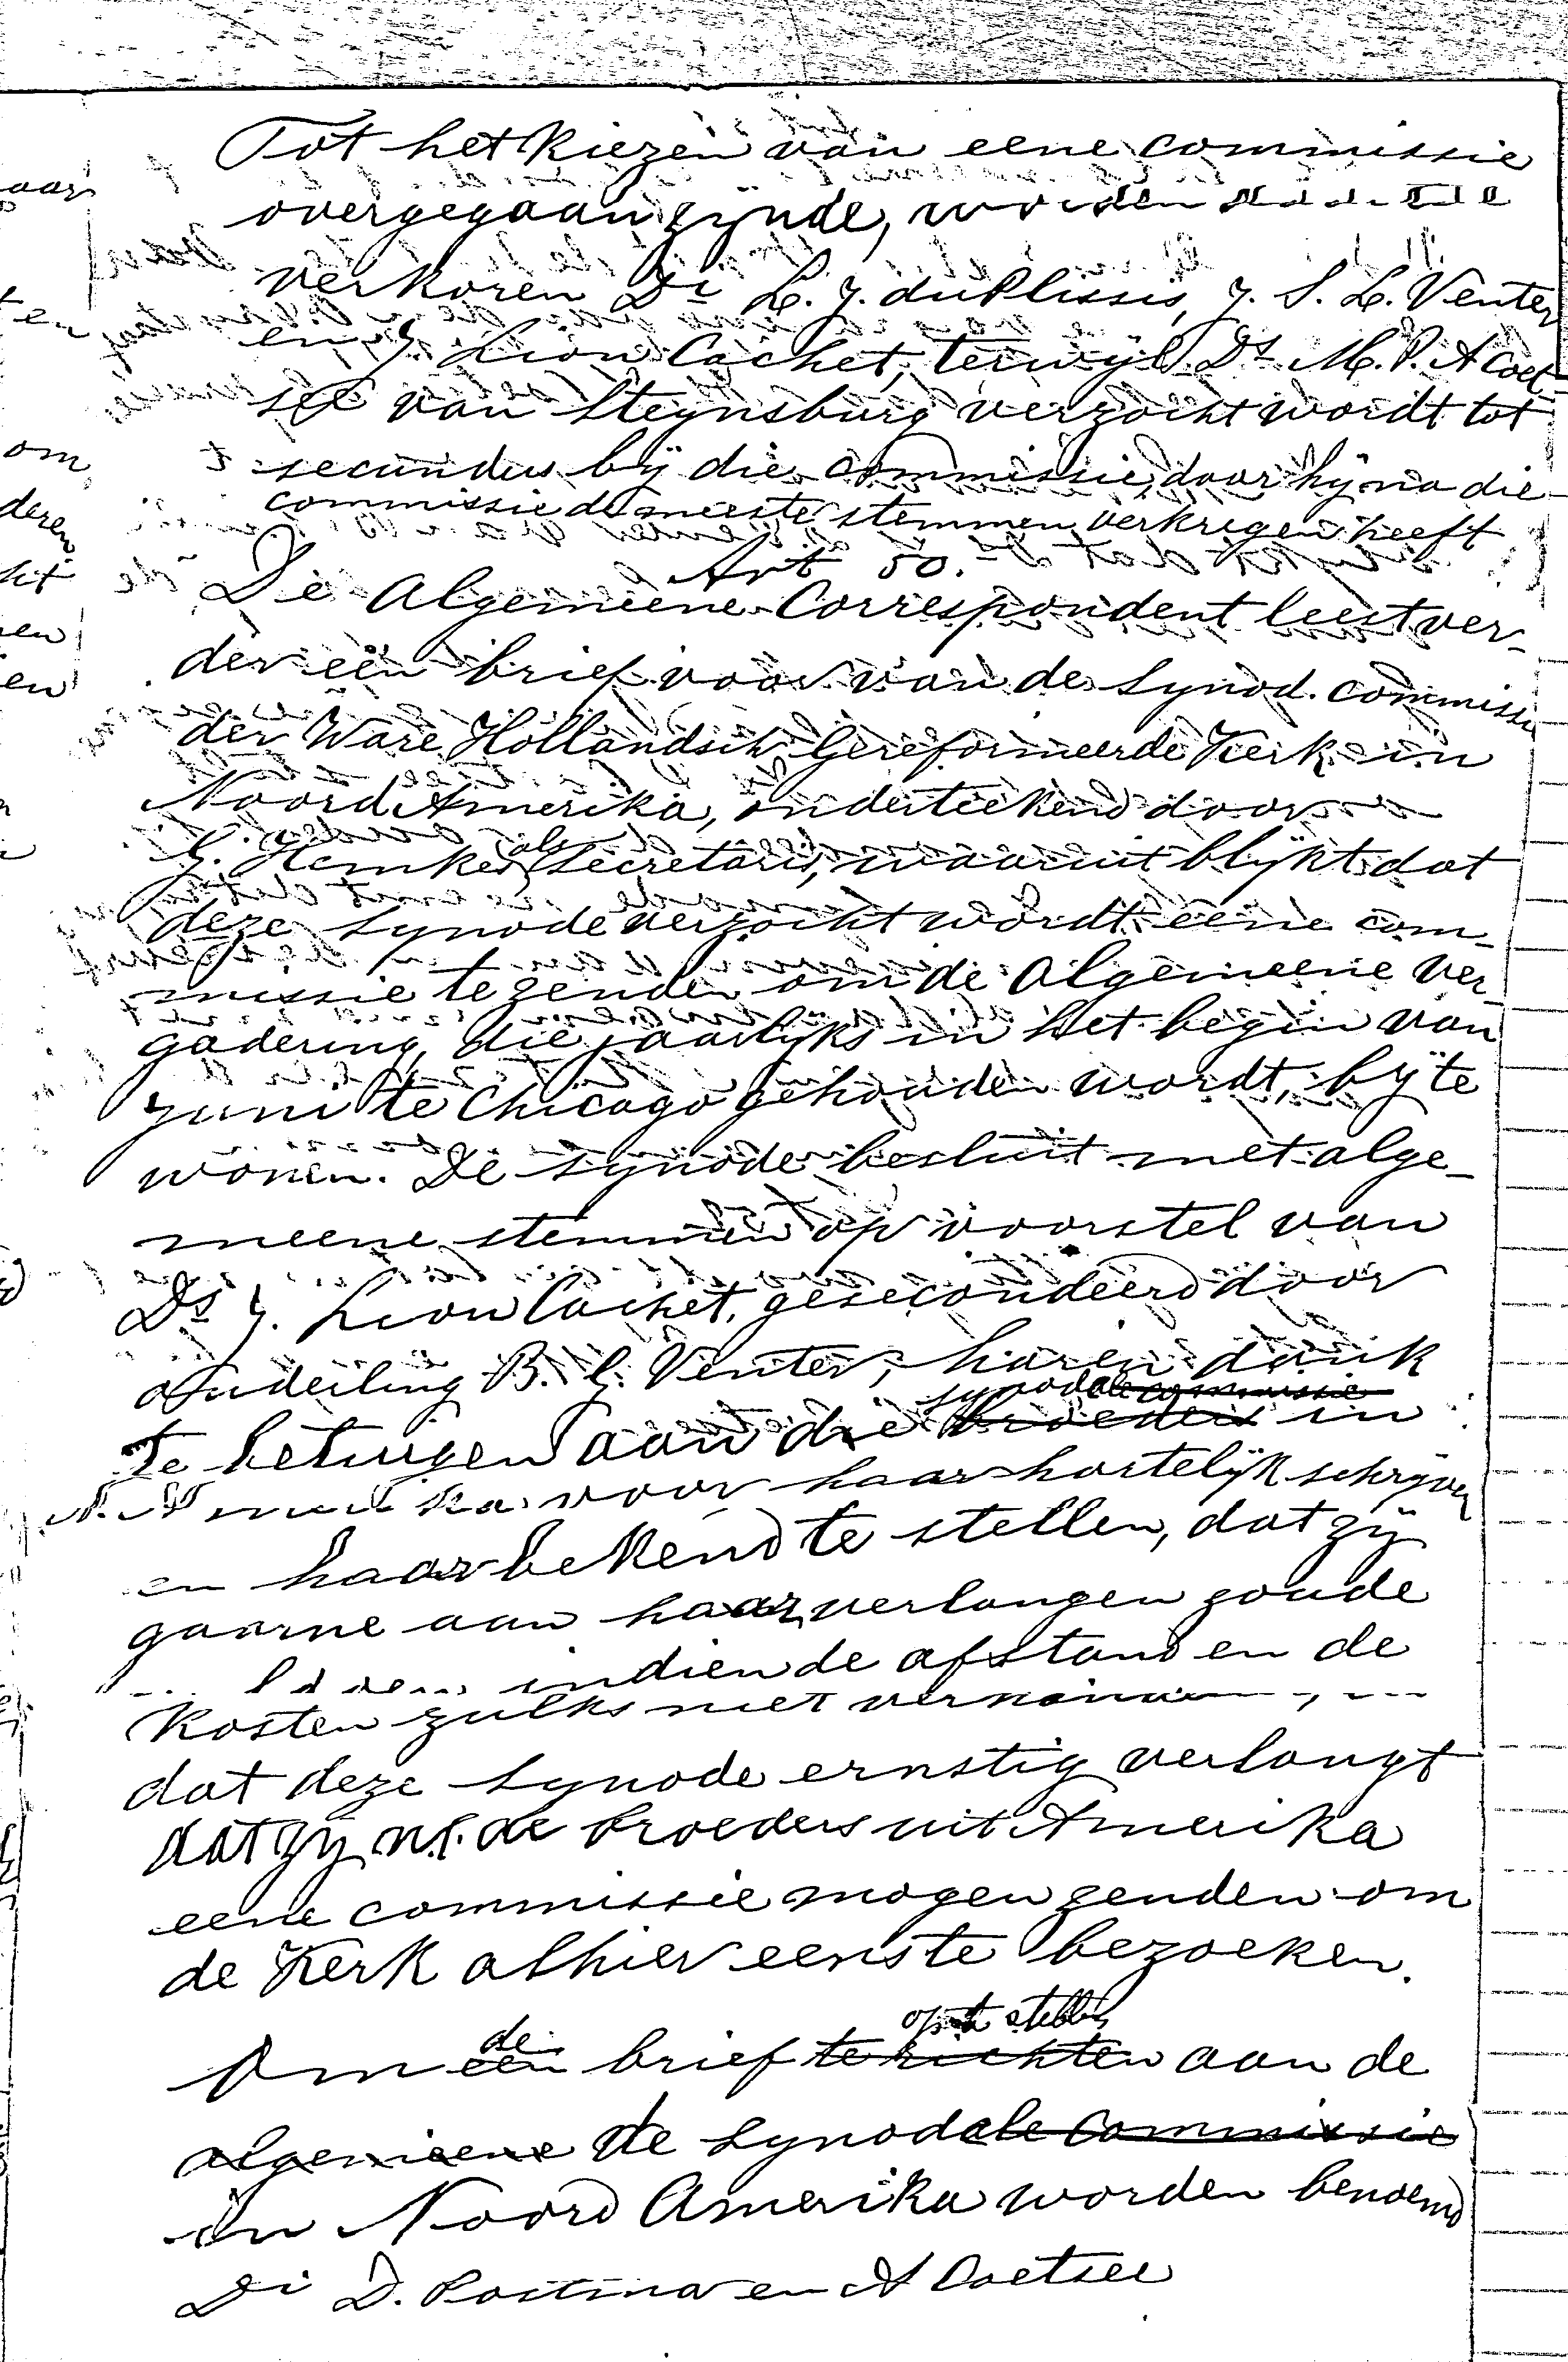 Tot het kiezen van eene commissie
overgegaan zijnde, worden
verkoren Di L. J. du Plissis, J. S. L. Venter
en J Lion Cachet, terwijl Ds M. P. A Coet-
see van Steynsburg verzocht wordt tot
secundus bij die commissie, daar hij na die
commissie de meeste stemmen verkregen heeft
Art 50.
De Algemeene Correspondent leest ver-
der een brief voor van de Synod. commissie
der Ware Hollandsch Gereformeerde Kerk in
Noord Amerika, onderteekend door
G. Hemkes als Secretaris, waaruit blijkt dat
deze Synode verzocht wordt eene com-
missie te zenden om de Algemeene Ver-
gadering, die jaarlijks in het begin van
Juni te Chicago gehouden wordt, bij te
wonen. De Synode besluit met alge-
meene stemmen op voorstel van
Ds J. Lion Cachet, gesecondeerd door
ouderling B. G. Venter, haren dank
te betuigen aan die synodale commissie broeders in
N. Amerika voor haar hartelijk schrijven
en haar bekend te stellen, dat zij
gaarne aan haar verlangen zoude
indien de afstand en de
kosten zulks niet
dat deze Synode ernstig verlangt
dat zij n.l. de broeders uit Amerika
eene commissie mogen zenden om
de Kerk alhier eens te bezoeken.
Om een de brief te richten op te stellen aan de
algemeene de Synodale Commissie
in Noord Amerika worden benoemd
Di D. Postma en A Coetsee
aar
ten
om
deren